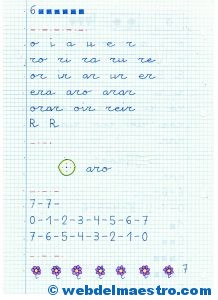 6
o i a u e r
ro ri ra ru re
or ir ar ur er
era aro arar
orar oir reir
R R
aro
7-7-
0-1-2-3-4-5-6-7
7-6-5-4-3-2-1-0
7
© webdelmaestro.com